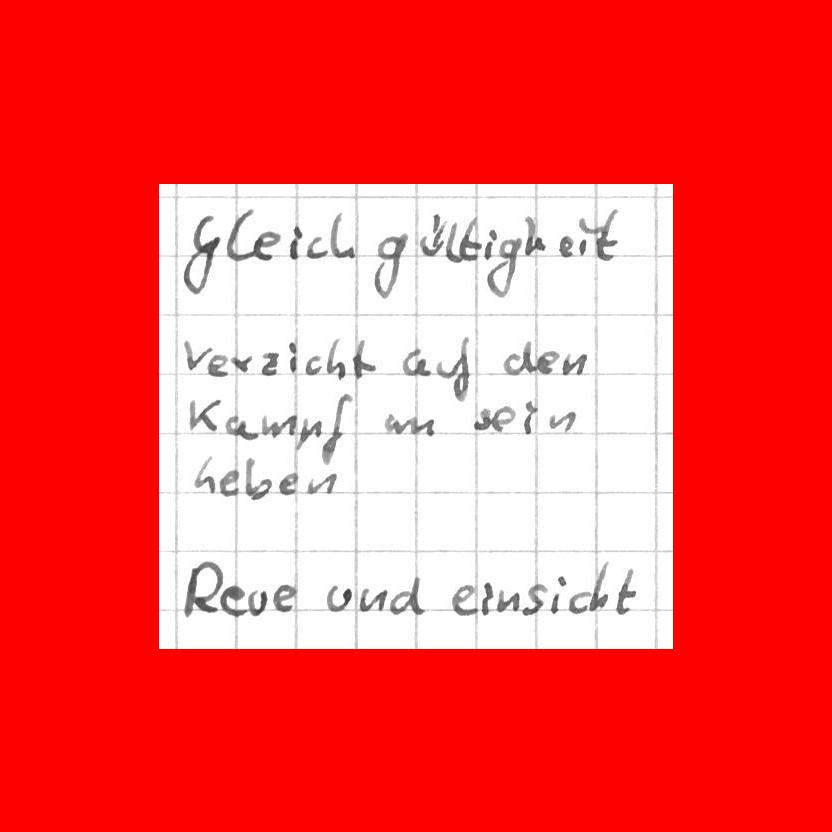 Gleichgültigkeit
Verzicht auf den
Kampf um sein
heben
Reue und einsicht